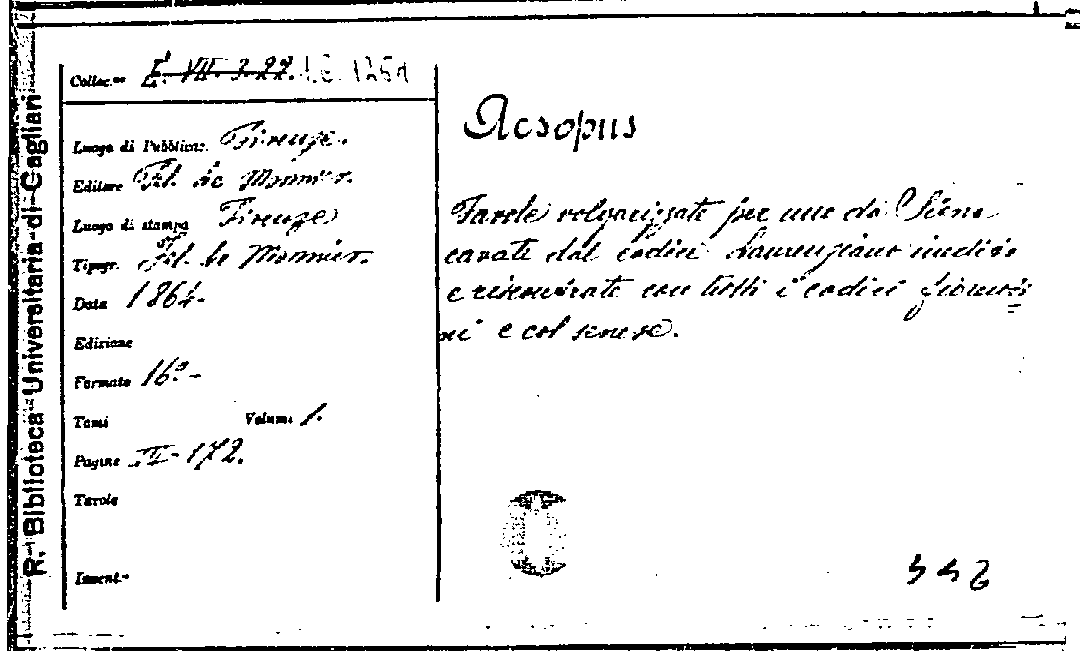 R. Biblioteca Universitaria di Cagliari
Colloc.ne E. VII. 3. 22.
Luogo di Pubblicaz. Firenze.
Editore Fel. Le Monnier.
Luogo di stampa Firenze
Tipogr. Fel. Le Monnier.
Data 1864.
Edizione
Formato 16.° -
Tomi Volumi 1.
Pagine 172.
Tavole
Invent.°
Aesopus
Favole volgarizzate per uno da Siena
cavate dal codici Laurenziano inedito
e riscontrate con tutti i codici fiorenti
ni e col senese.